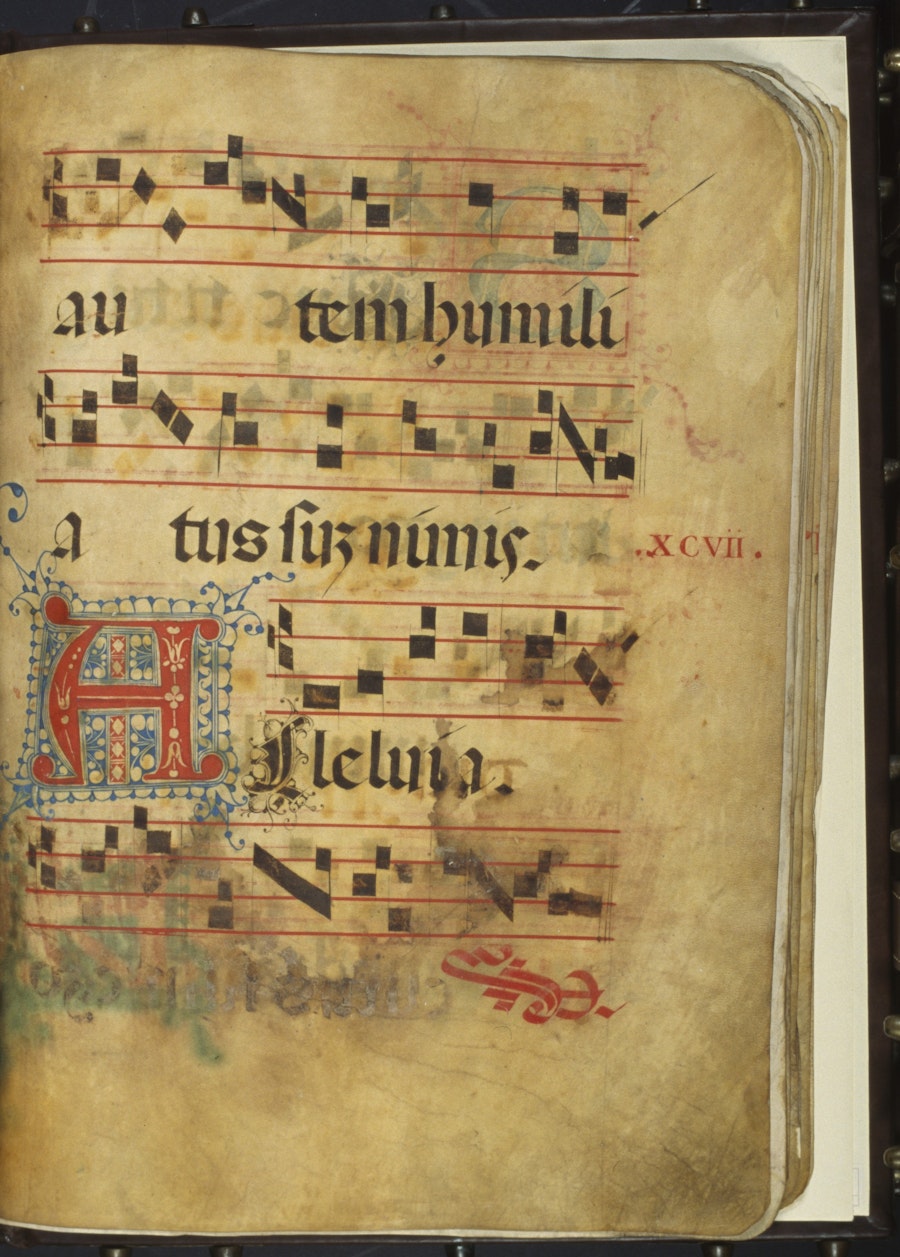 au tem humili
a tus suʒ nimis.
.XCVII.
Alleluia.